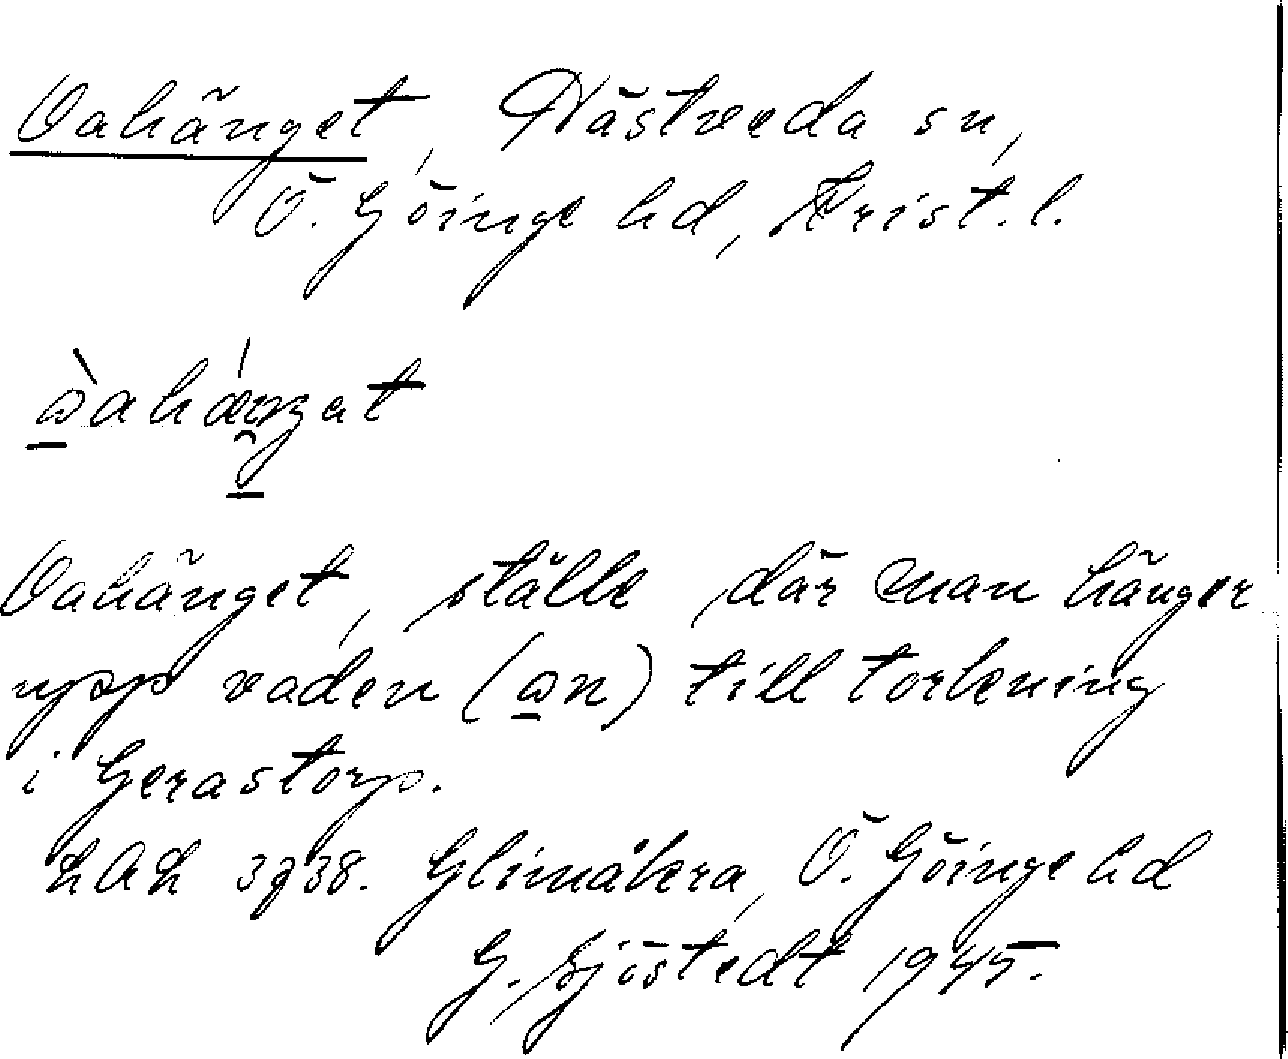 Oahänget, Nästveda sn,
Ö. Göinge hd, Krist. l.
Oahänget, ställe där man hänger
upp vaden (ɷn) till torkning
i Gerastorp.
LAL 3738. Glimåkra, Ö. Göinge hd
G. Sjöstedt 1945.